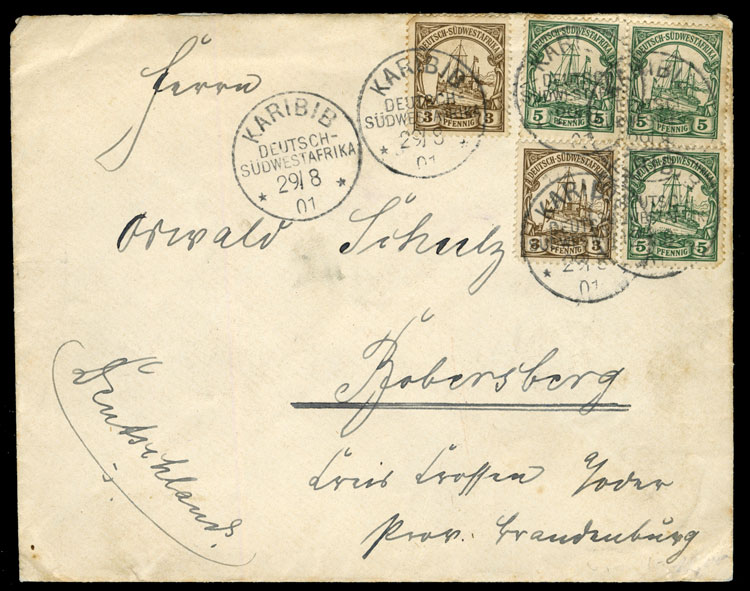 Herrn
KARIBIB
DEUTSCH-
SÜDWESTAFRIKA
29/8
01
KARIBIB
DEUTSCH-
SÜDWESTAFRIKA
29/8
01
DEUTSCH-SÜDWESTAFRIKA
3 PFENNIG 3
DEUTSCH-SÜDWESTAFRIKA
5 PFENNIG 5
DEUTSCH-SÜDWESTAFRIKA
5 PFENNIG 5
DEUTSCH-SÜDWESTAFRIKA
3 PFENNIG 3
DEUTSCH-SÜDWESTAFRIKA
5 PFENNIG 5
KARIBIB
29/8
01
Oswald Schulz
Bobersberg
Kreis Crossen Oder
Prov. Brandenburg
Deutschland.